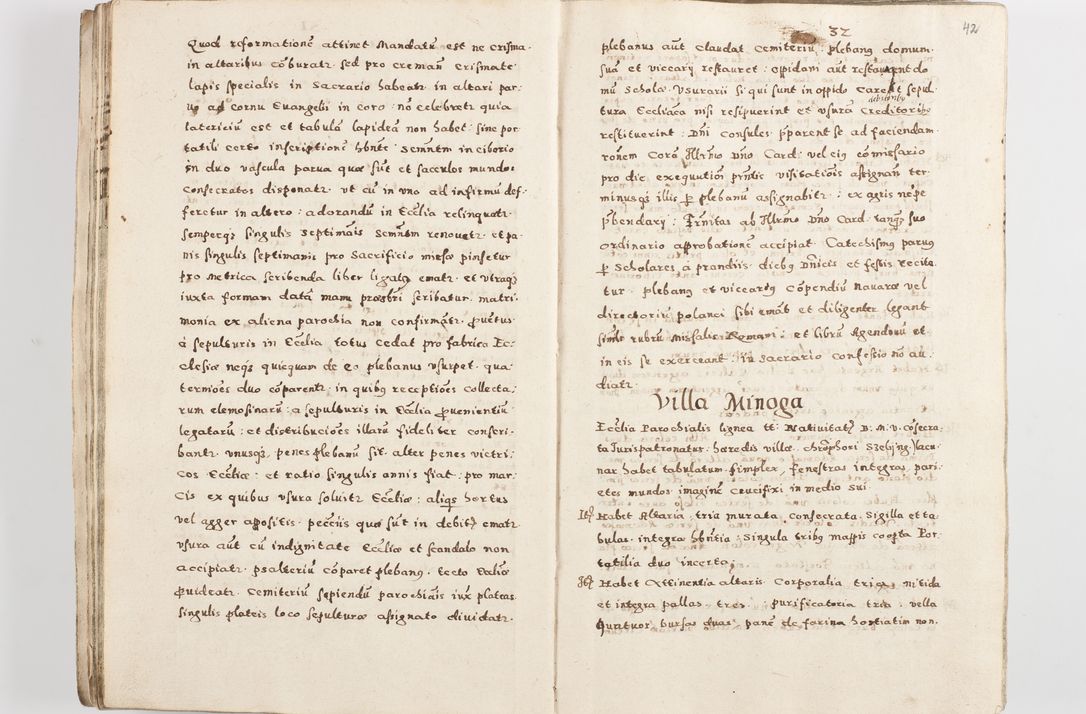 Quod reformationē attinet Mandatū est ne crisma
in altaribus cōburatr sed pro creman̄ Crismate
lapis specialis in Sacrario habeatr in altari par
vo ad cornu Euangelii in coro nō celebretr quia
latericiū est et tabulā lapideā non habet sine por
tatili certo inscriptione hbnte Senn̄tm in ciborio
in duo vascula parua quæ sūt et sacculos mundos
consecratos disponatr vt cū in vno ad infirmū def
feretur in altero adorandū in Ecclia relinquatr
semperqȝ singulis septimāis Senn̄tm renouetr et pa
nis singulis septimanis pro Sacrificio missæ pinsetur
pro metrica scribenda liber ligatȝ ematr et vtraqȝ
iuxta formam datā manu prosbri scribatur matri
monia ex aliena parochia non confirmātr ꝓuētus
à sepulturis in Ecclia totus cedat pro fabrica Ec
clesiæ neqȝ quicquam de eo plebanus vsurpet qua
termoēs duo cōparentr in quibȝ receptiōes collecta
rum elemosinarū a sepulturis in Ecclia ꝓuenientiū
legatarū et distribucioēs illarū fideliter conscri
bantr vnusqȝ penes plebanū sit alter penes victri
cos Eccliæ et ratio singulis annis fiat pro mar
cis ex quibus vsura soluitr Eccliæ aliqȝ hortus
vel agger appositis pecciis quæ sūt in debitȝ ematr
vsura aūt cū indignitate Eccliæ et scandalo non
accipiatr psalteriū cōparet plebanȝ tecto Eccliæ
ꝓuideatr Cemiteriū sepiendū parochiāis iux plateas
singulis plateis loco sepulturæ assignato diuidatr
32
42
plebanus aūt claudat Cemiteriū plebanȝ domum
suā et viccarȷ restauret oppidani aūt restaurent do
mū Scholæ Vsurarii si qui sunt in oppido Careāt sepul
tura Eccliāca nisi resipuerint et vsurā Creditoribȝ
debitoribȝ
restituerint Dn̄i Consules pparent se ad faciendam
ronēm Corā Illrmo Dn̄o Card vel eiȝ cōmissario
pro die exequutiōi prn̄tis visitatiōis assignan̄ ter
minusqȝ illis ꝑ plebanū assignabitr ex agris nepe
pbendarȷ Frn̄itas ab Illrmo Dn̄o Card tanqȝ suo
ordinario approbationē accipiat Catechismȝ paruȝ
ꝑ Scholares à prandiis diebȝ Dn̄icis et festis recita
tur plebanȝ et viccariȝ cōpendiū Nauaræ vel
directoriū polanci sibi emāt et diligenter legant
simlr rubrū missalis Romani et librū Agendorū et
in eis se exerceant in Sacrario confessio nō au
diatr
Villa Minoga
Ecclia Parochialis lignea tt Natiuitatȝ B. M. V. cōsecra
ta Jurispatronatus hæredis villæ Chrophori Szebing lacu
nar habet tabulatum simplex, fenestras integras, pari
etes mundos imaginē Crucifixi in medio sui
Itȝ Habet Altaria tria murata consecrata Sigilla et ta
bulas integra hbn̄tia Singula tribȝ mappis coopta Por
tatilia duo incerta
Itȝ Habet Attinentia altaris Corporalia tria nitida
et integra pallas tres purificatoria tria vella
quatuor bursas duas panē de farina hostiatim non